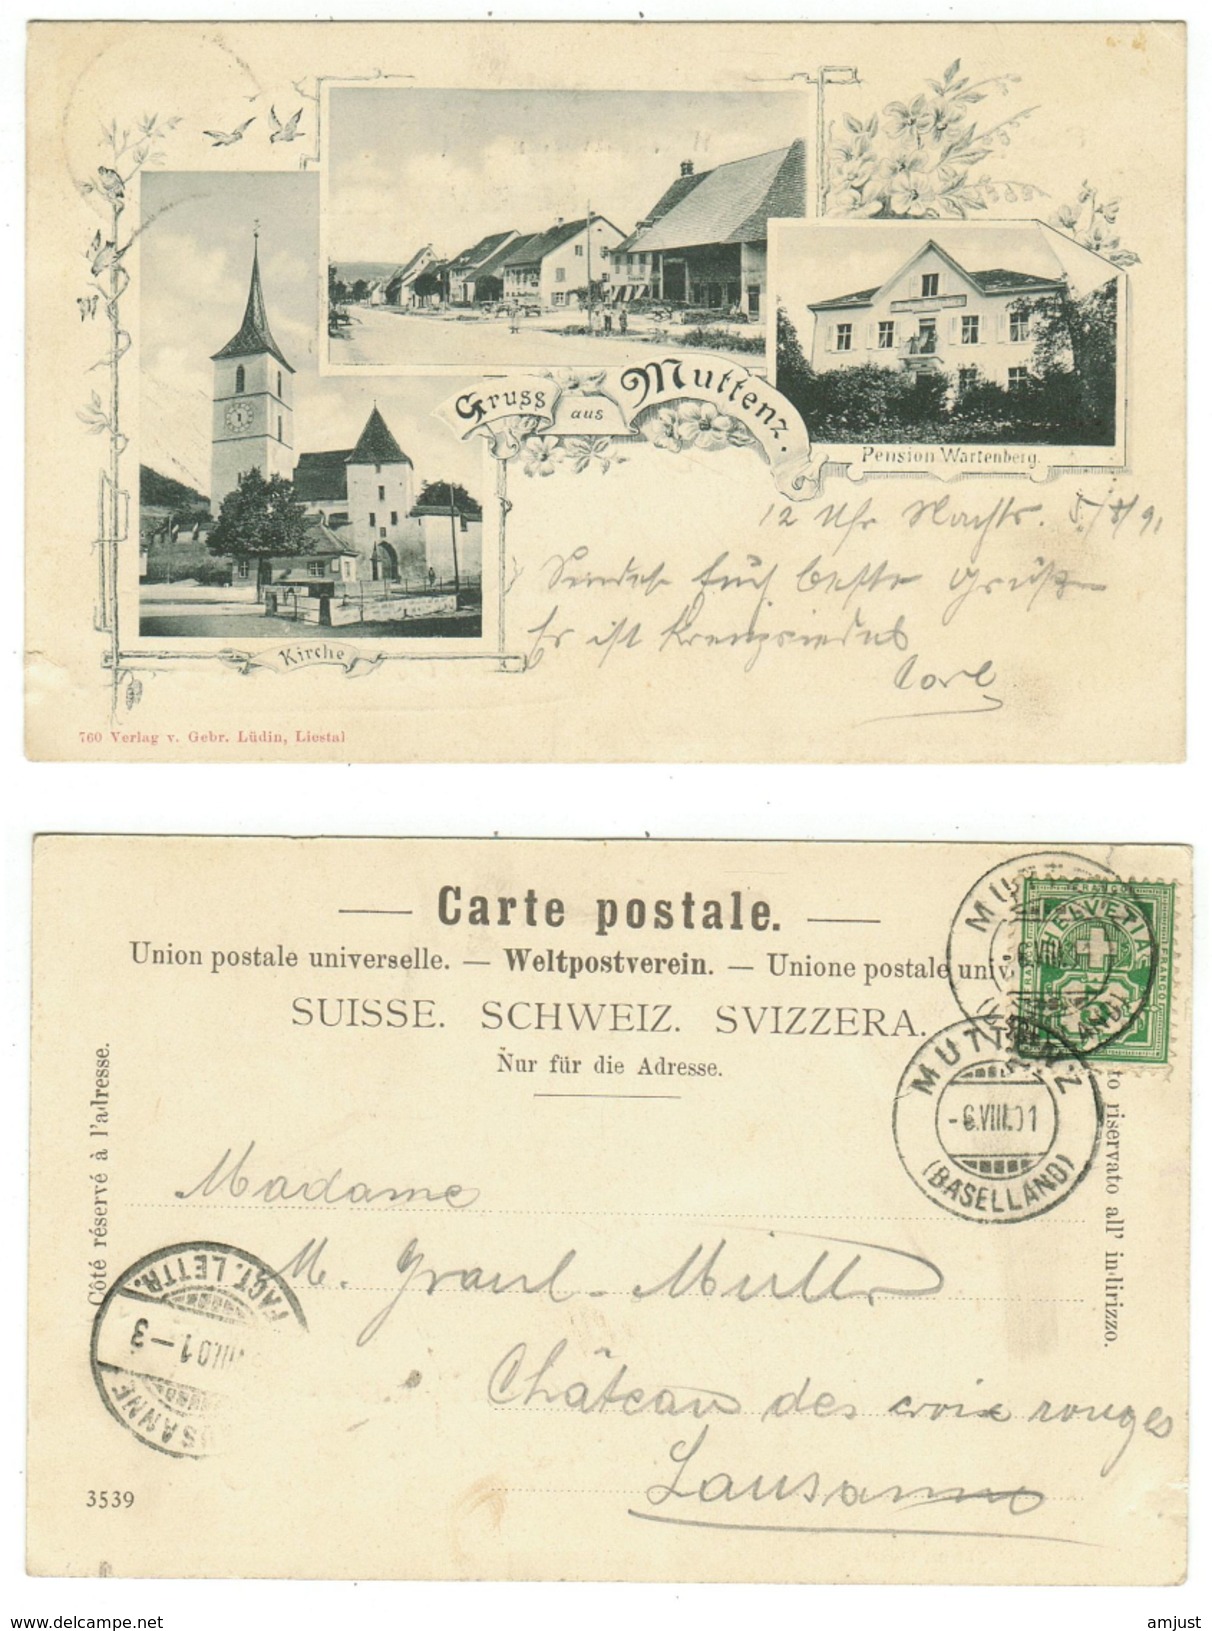 Gruss aus Muttenz.
Pension Wartenberg.
12 Uhr Nachts. 5/8/91
Sendet Euch beste Grüße
Er ist Kreuzfidel
Carl
Kirche
760 Verlag v. Gebr. Lüdin, Liestal
Carte postale.
Union postale universelle. — Weltpostverein. — Unione postale univ
SUISSE. SCHWEIZ. SVIZZERA.
Nur für die Adresse.
HELVETIA
FRANCO
MUTTENZ
-6.VIII.01
(BASELLAND)
Côté réservé à l'adresse.
to riservato all' indirizzo.
Madame
M. Graul-Müller
Château des croix rouges
Lausanne
FACT. LETTR.
VIII.01-3
USANNE
3539
www.delcampe.net
amjust